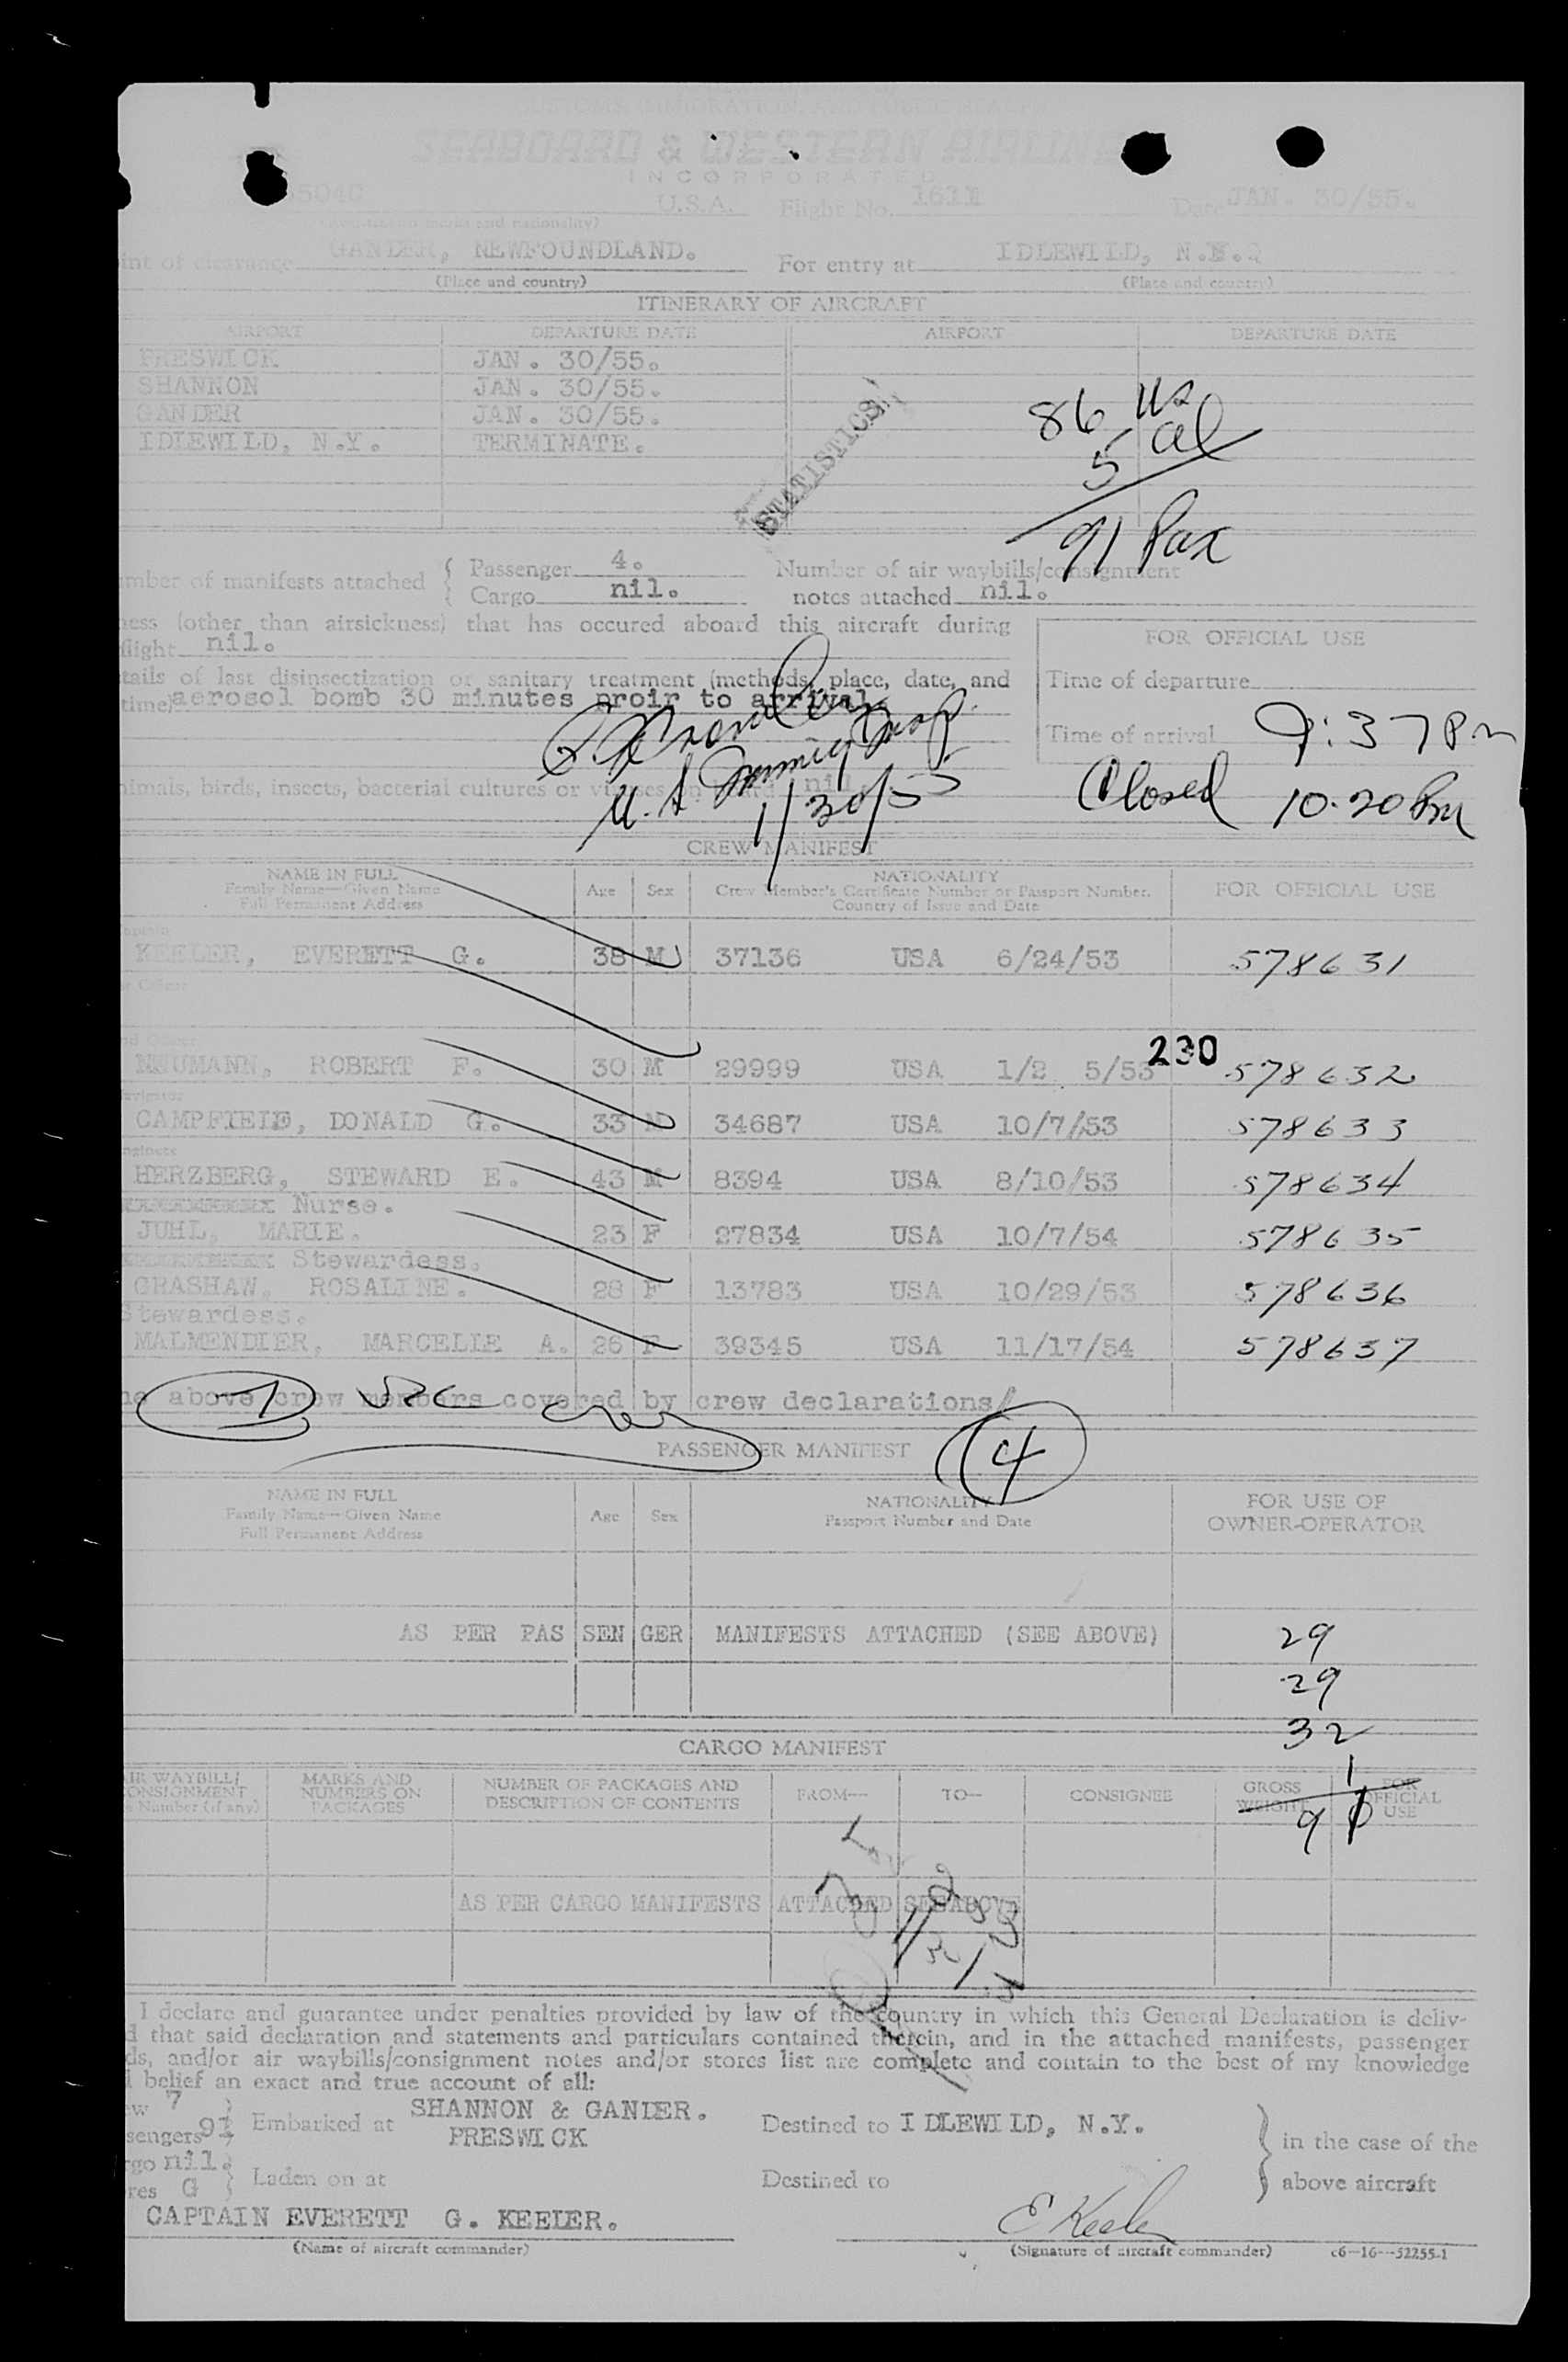 CUSTOMS, IMMIGRATION, AND PUBLIC HEALTH
SEABOARD & WESTERN AIRLINES
INCORPORATED
5040 U.S.A. Flight No. 1611 Date JAN. 30/55.
marks and nationality)
int of clearance GANDER, NEWFOUNDLAND. For entry at IDLEWILD, N.Y.
(Place and country) (Place and country)
ITINERARY OF AIRCRAFT
AIRPORT DEPARTURE DATE AIRPORT DEPARTURE DATE
PRESWICK JAN. 30/55.
SHANNON JAN. 30/55.
GANDER JAN. 30/55.
IDLEWILD, N.Y. TERMINATE.
STATISTICS
86 us
5 al
91 Pax
umber of manifests attached { Passenger 4. Number of air waybills/consignment
Cargo nil. notes attached nil.
ness (other than airsickness) that has occured aboard this aircraft during
flight nil.
FOR OFFICIAL USE
tails of last disinsectization or sanitary treatment (methods, place, date, and
time) aerosol bomb 30 minutes proir to arrival.
Time of departure
Time of arrival 9:37 Pm
U.S. Immig Insp.
1/30/55
Closed 10:20 Pm
nimals, birds, insects, bacterial cultures or viruses on board nil
CREW MANIFEST
NAME IN FULL
Family Name—Given Name
Full Permanent Address
Age Sex
NATIONALITY
Crew Member's Certificate Number or Passport Number.
Country of Issue and Date
FOR OFFICIAL USE
KEELER, EVERETT G. 38 M 37136 USA 6/24/53 578631
230
NEUMANN, ROBERT F. 30 M 29999 USA 1/2 5/53 578632
CAMPFIELD, DONALD G. 33 M 34687 USA 10/7/53 578633
HERZBERG, STEWARD E. 43 M 8394 USA 8/10/53 578634
Nurse.
JUHL, MARIE. 23 F 27834 USA 10/7/54 578635
Stewardess.
CRASHAW, ROSALINE. 28 F 13783 USA 10/29/53 578636
Stewardess.
MALMENDIER, MARCELLE A. 26 F 39345 USA 11/17/54 578637
he above crew members covered by crew declarations
7 USC crew
PASSENGER MANIFEST
4
NAME IN FULL
Family Name—Given Name
Full Permanent Address
Age Sex
NATIONALITY
Passport Number and Date
FOR USE OF
OWNER-OPERATOR
AS PER PAS SEN GER MANIFESTS ATTACHED (SEE ABOVE) 29
29
32
1
91
CARGO MANIFEST
AIR WAYBILL/
CONSIGNMENT
Number (if any)
MARKS AND
NUMBERS ON
PACKAGES
NUMBER OF PACKAGES AND
DESCRIPTION OF CONTENTS
FROM— TO— CONSIGNEE
GROSS
WEIGHT
FOR
OFFICIAL
USE
AS PER CARGO MANIFESTS ATTACHED SEE ABOVE
I declare and guarantee under penalties provided by law of the country in which this General Declaration is deliv-
d that said declaration and statements and particulars contained therein, and in the attached manifests, passenger
ds, and/or air waybills/consignment notes and/or stores list are complete and contain to the best of my knowledge
l belief an exact and true account of all:
ew 7
sengers 91 } Embarked at SHANNON & GANDER. Destined to IDLEWILD, N.Y.
PRESWICK
in the case of the
rgo nil.
res G } Laden on at Destined to above aircraft
CAPTAIN EVERETT G. KEELER. E Keeler
(Name of aircraft commander) (Signature of aircraft commander) c6—16—52255-1